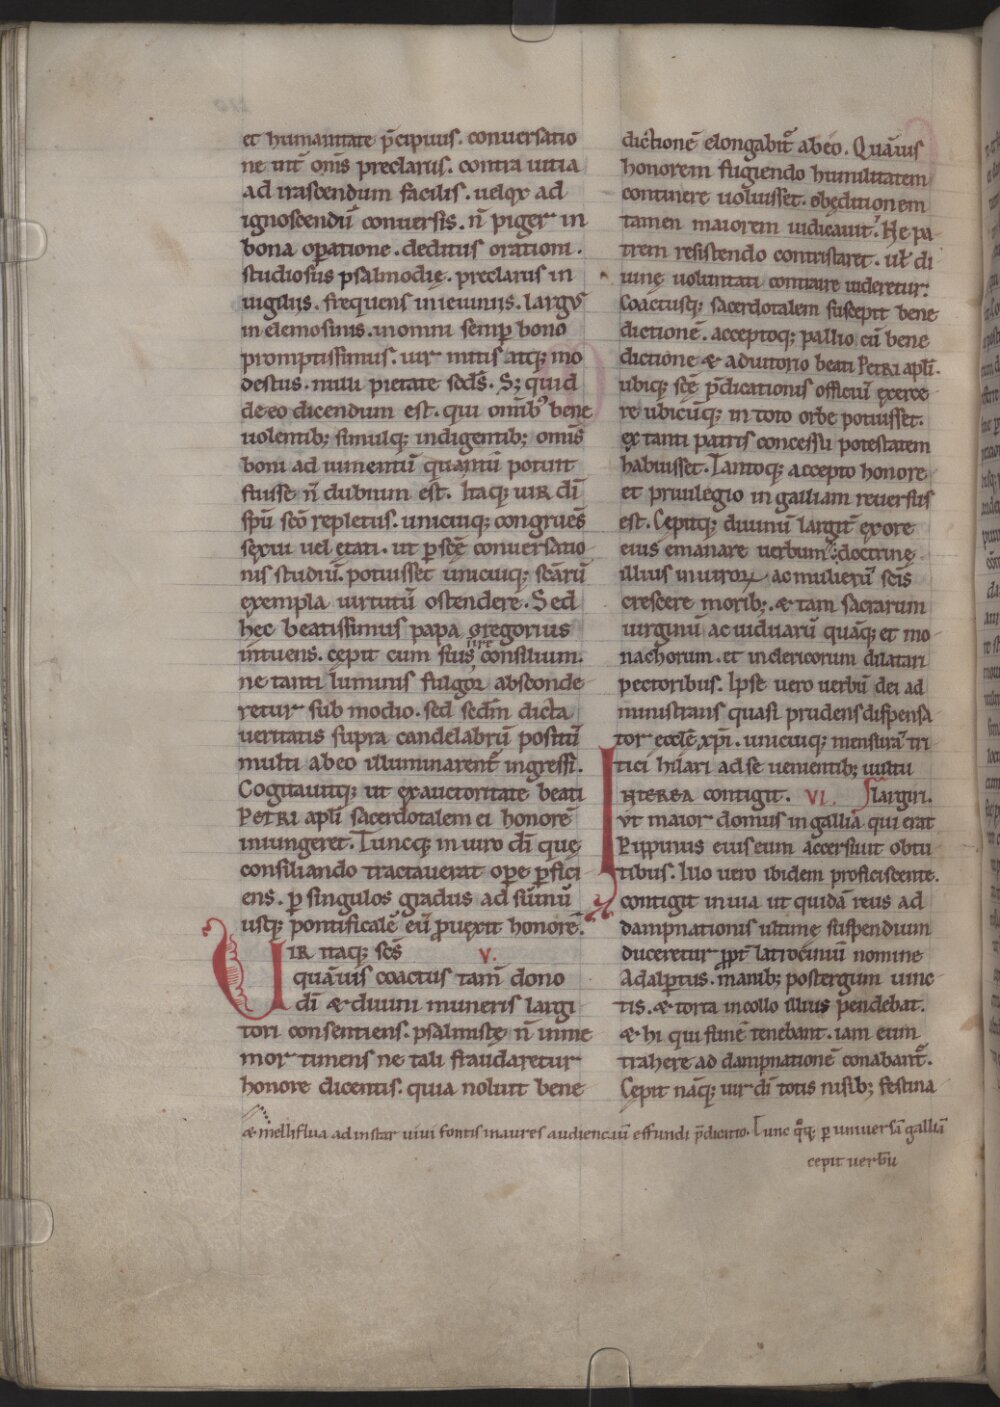 et humanitate p̄cipuus. conuersatio
ne uitę om̄is preclarus. contra uitia
ad irascendum facilis. uelox ad
ignoscendū conuersis. n̄ piger in
bona op̄atione. deditus orationi.
studiosus psalmodię. preclarus in
uigiliis. frequens in ieiuniis. largus
in elemosinis. in omni semp̄ bono
promptissimus. uir mitis atq; mo
destus. nulli pietate sc̄ds. S; quid
de eo dicendum est. qui omīb; bene
uolentib; simulq; indigentib; omīs
boni adiumentū quantū potuit
fuisse n̄ dubium est. Itaq; uir dī
sp̄u sc̄o repletus. unicuiq; congruēs
sexui uel ętati. ut p̄ sc̄ę conuersatio
nis studiū. potuisset unicuiq; sc̄arū
exempla uirtutū ostendere. Sed
hęc beatissimus papa gregorius
intuens. cepit cum suis inire consilium.
ne tanti luminis fulgor absconde
retur sub modio. sed sc̄dm dicta
ueritatis supra candelabrū positū
multi ab eo illuminarent̄ ingressi.
Cogitauitq; ut ex auctoritate beati
PETRI apl̄i sacerdotalem ei honorē
iniungeret. Tuncq; in uiro dī quę
consiliando tractauerat ope p̄fici
ens. p̄ singulos gradus ad sūmū
usq; pontificalē eū prouexit honorē.
UIR itaq; sc̄s V.
quāuis coactus tam̄ dono
dī & diuini muneris largi
tori consentiens. psalmistę n̄ inme
mor timens ne tali fraudaretur
honore dicentis. quia noluit bene
dictionē elongabit̄ ab eo. Quāuis
honorem fugiendo humilitatem
continere uoluisset. obęditionem
tamen maiorem iudicauit. Ne pa
trem resistendo contristaret. uł di
uinę uoluntati contraire uideretur.
Coactusq; sacerdotalem suscepit bene
dictionē. acceptoq; pallio cū bene
dictione & adiutorio beati PETRI apl̄i.
ubiq; sc̄ę p̄dicationis officiū exerce
re ubicūq; in toto orbe potuisset.
ex tanti patris concessu potestatem
habuisset. Tantoq; accepto honore
et priuilegio in galliam reuersus
est. Cepitq; diuinū largit̄ ex ore
eius emanare uerbum. doctrinę
illius in uirorꝝ ac mulierū sc̄is
crescere morib;. & tam sacrarum
uirginū ac uiduarū quāq; et mo
nachorum. et in clericorum dilatari
pectoribus. Ipse uero uerbū dei ad
ministrans quasi prudens dispensa
tor ęccl̄ę xp̄i. unicuiq; mensurā tri
tici hilari ad se uenientib; uultu
INTEREA contigit. VI. largiri.
ut maior domus in galliā qui erat
Pippinus eius eum accersiuit obtu
tibus. Illo uero ibidem proficiscente.
contigit in uia ut quidā reus ad
dampnationis ultimę suspendium
duceretur ppt̄ latrociniū nomine
Adalp̄tus. manib; postergum uinc
tis. & torta in collo illius pendebat.
& hi qui funē tenebant. iam eum
trahere ad dampnationē conabant̄.
Cępit nāq; uir dī totis nisib; festina
& melliflua ad instar uiui fontis in aures audientiū effundi p̄dicatio. Tunc qq; p̄ uniuersā galliā
cepit uerbū